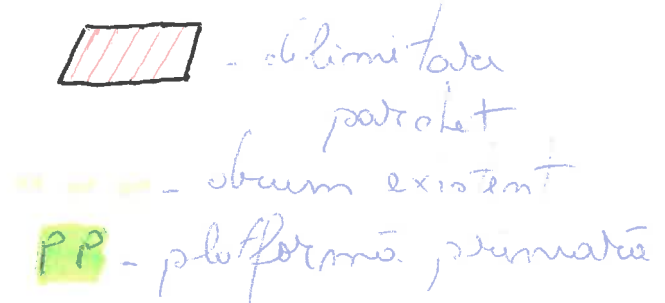 - delimitare
parchet
- drum existent
PP - platformă primară